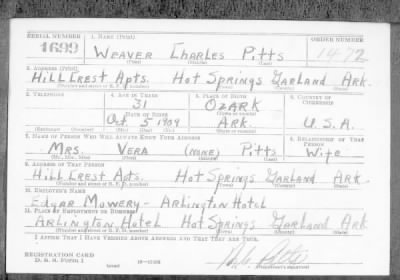 SERIAL NUMBER 1. NAME (Print) ORDER NUMBER
1699 WEAVER CHARLES PITTS 1472
(First) (Middle) (Last)
2. ADDRESS (Print)
HILL CREST APTS. HOT SPRINGS GARLAND ARK.
(Number and street or R. F. D. number) (Town) (County) (State)
3. TELEPHONE 4. AGE IN YEARS 5. PLACE OF BIRTH 6. COUNTRY OF CITIZENSHIP
31 OZARK
DATE OF BIRTH (Town or county)
OCT 5 1909 ARK. U.S.A.
(Exchange) (Number) (Mo.) (Day) (Yr.) (State or country)
7. NAME OF PERSON WHO WILL ALWAYS KNOW YOUR ADDRESS 8. RELATIONSHIP OF THAT PERSON
MRS. VERA (NONE) PITTS WIFE
(Mr., Mrs., Miss) (First) (Middle) (Last)
9. ADDRESS OF THAT PERSON
HILL CREST APTS. HOT SPRINGS GARLAND ARK.
(Number and street or R. F. D. number) (Town) (County) (State)
10. EMPLOYER'S NAME
EDGAR MOWERY - ARLINGTON HOTEL
11. PLACE OF EMPLOYMENT OR BUSINESS
ARLINGTON HOTEL HOT SPRINGS GARLAND ARK
(Number and street or R. F. D. number) (Town) (County) (State)
I AFFIRM THAT I HAVE VERIFIED ABOVE ANSWERS AND THAT THEY ARE TRUE.
REGISTRATION CARD
D. S. S. Form 1